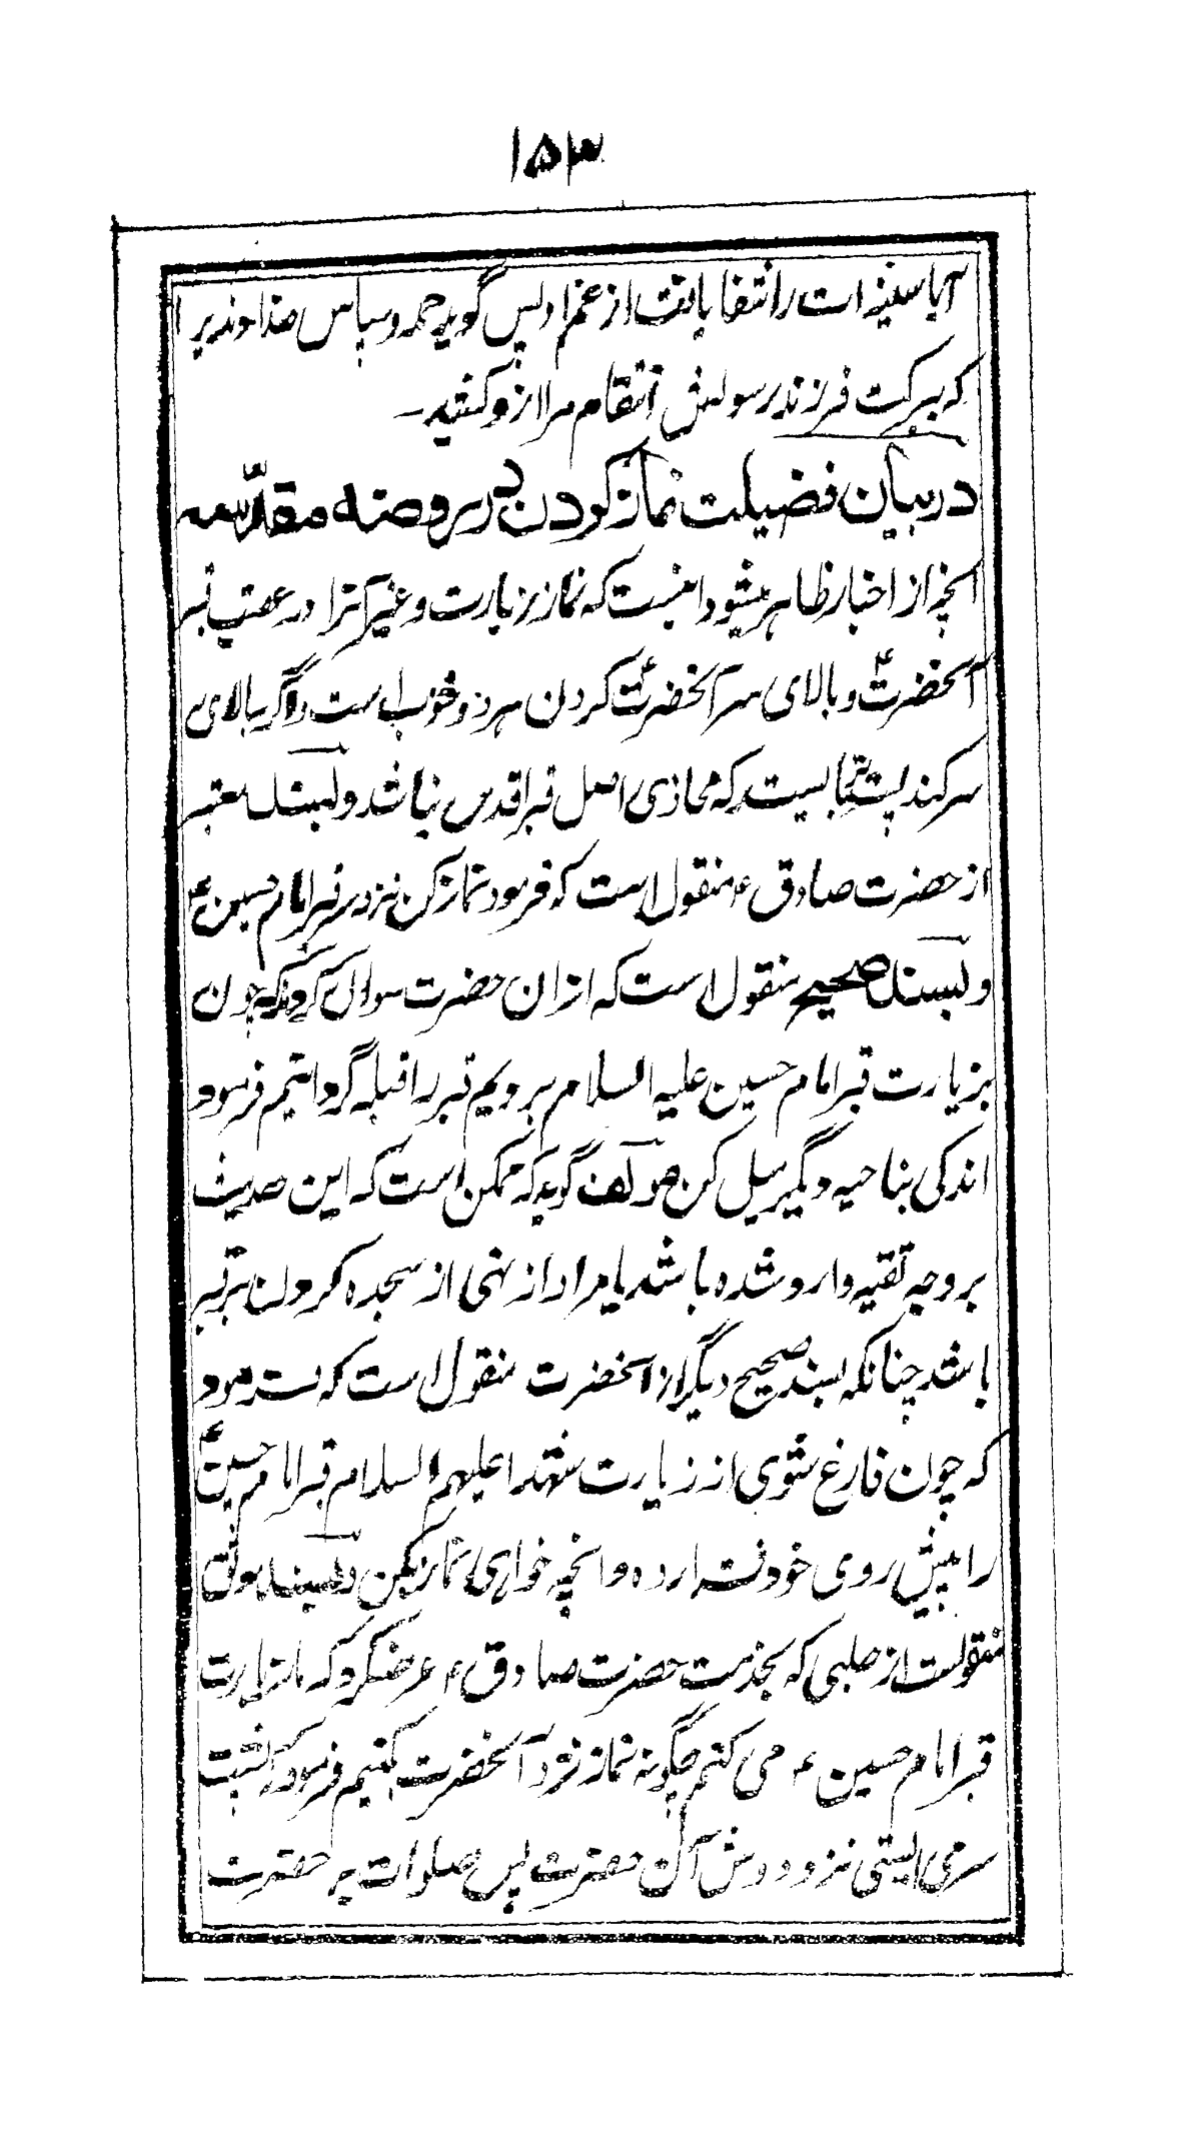 ۱۵۳
آیا سینه ات را شفا یافت از غم او پس گوید حمد و سپاس خداوندیرا
که ببرکت فرزند رسولش انتقام مرا ازو کشید
در بیان فضیلت نماز کردن در روضه مقدّسه
انچه از اخبار ظاهر میشود اینست که نماز زیارت و غیر آنرا در عقب قبر
آنحضرتؑ و بالای سر آنحضرتؑ کردن هر دو خوب است و اگر بالای
سر کند پشت تر بایستد که محاذی اصل قبر اقدس نباشد و بسند معتبر
از حضرت صادق ع منقول است که فرمود نماز کن نزد سر قبر امام حسین ع
و بسند صحیح منقول است که از ان حضرت سوال کردند که چون
بزیارت قبر امام حسین علیه السلام برویم قبر را قبله گردانیم فرمود
اندکی بناحیه دیگر میل کن مولف گوید که ممکن است که این حدیث
بر وجه تقیه وارد شده باشد یا مراد از نهی از سجده کردن بر قبر
باشد چنانکه بسند صحیح دیگر از آنحضرت منقول است که فرمود
که چون فارغ شوی از زیارت شهدا علیهم السلام قبر امام حسینؑ
را پیش روی خود قرار ده و انچه خواهی نماز بکن و بسند موثق
منقولست از حلبی که بخدمت حضرت صادق ع عرضکرد که ما زیارت
قبر امام حسین ع می کنم چگونه نماز نزد آنحضرت کنیم فرمود که پشت
سر می ایستی نزد دوش آن حضرت پس صلوات بر حضرت